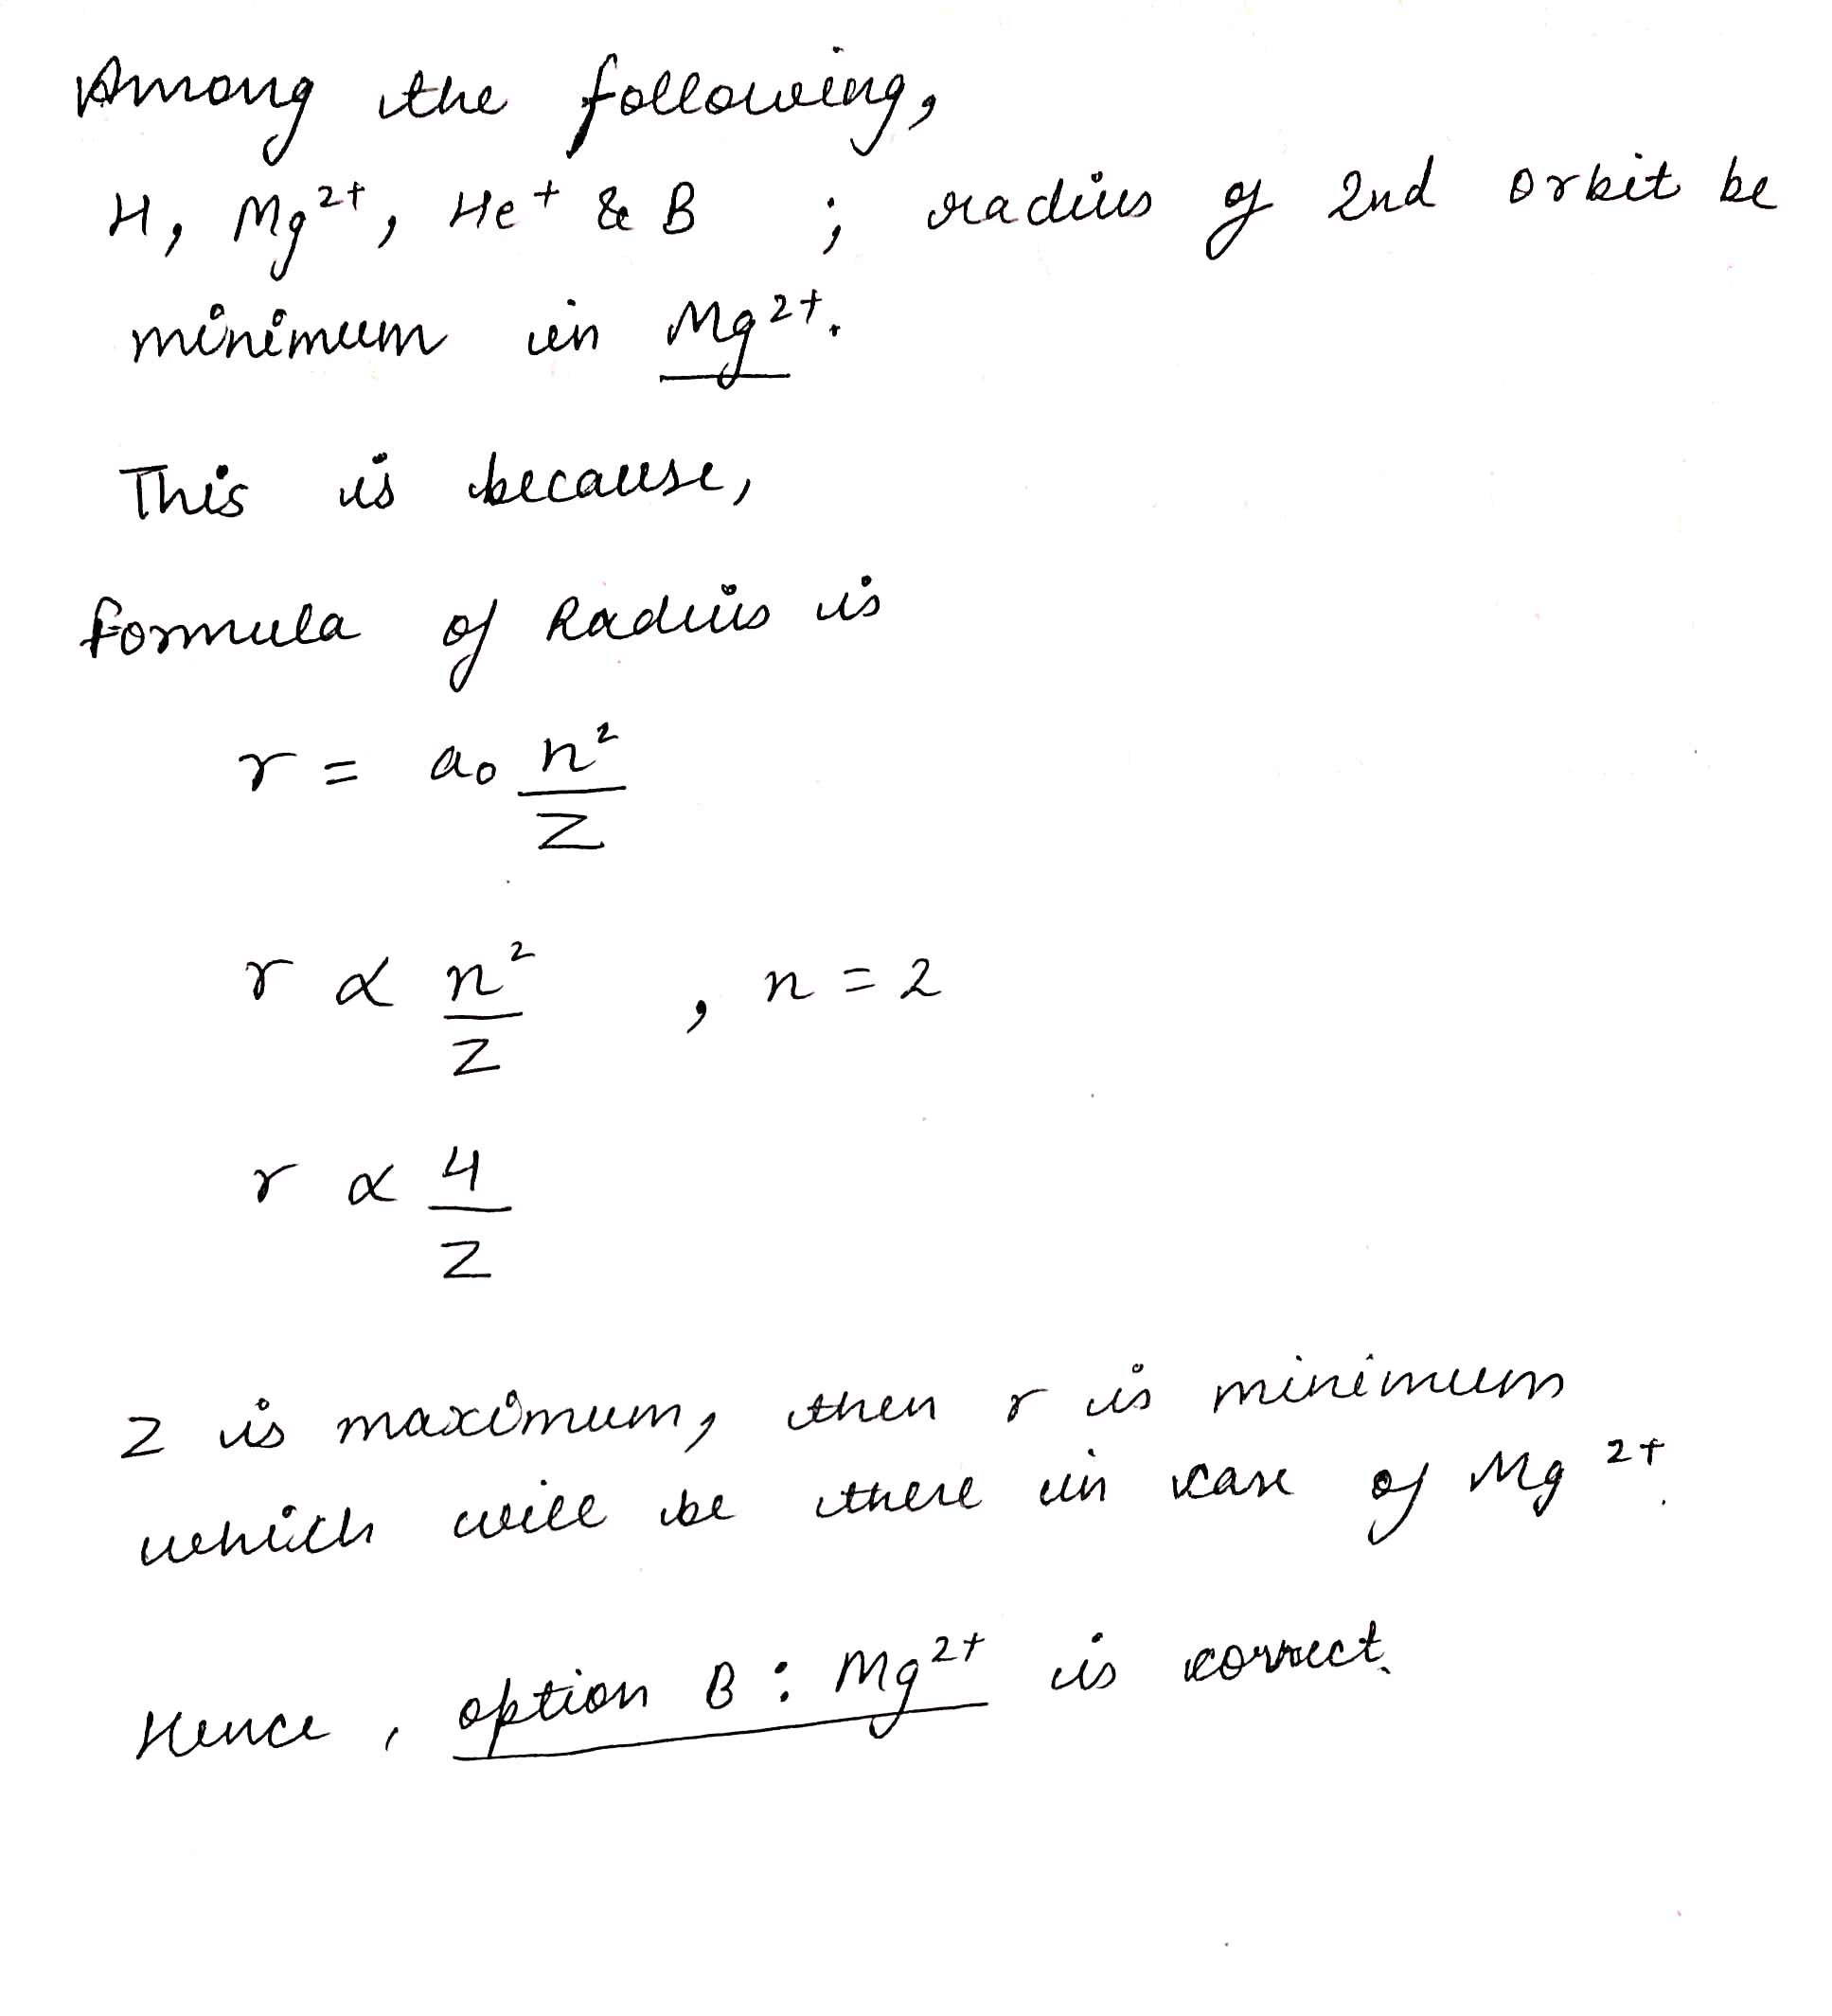 Among the following,
H, Mg²⁺, He⁺ & B ; radius of 2nd orbit be
minimum in Mg²⁺.
This is because,
formula of Radius is
r = a₀ n²/Z
r α n²/Z , n = 2
r α 4/Z
Z is maximum, then r is minimum
which will be there in case of Mg²⁺.
Hence, option B : Mg²⁺ is correct.